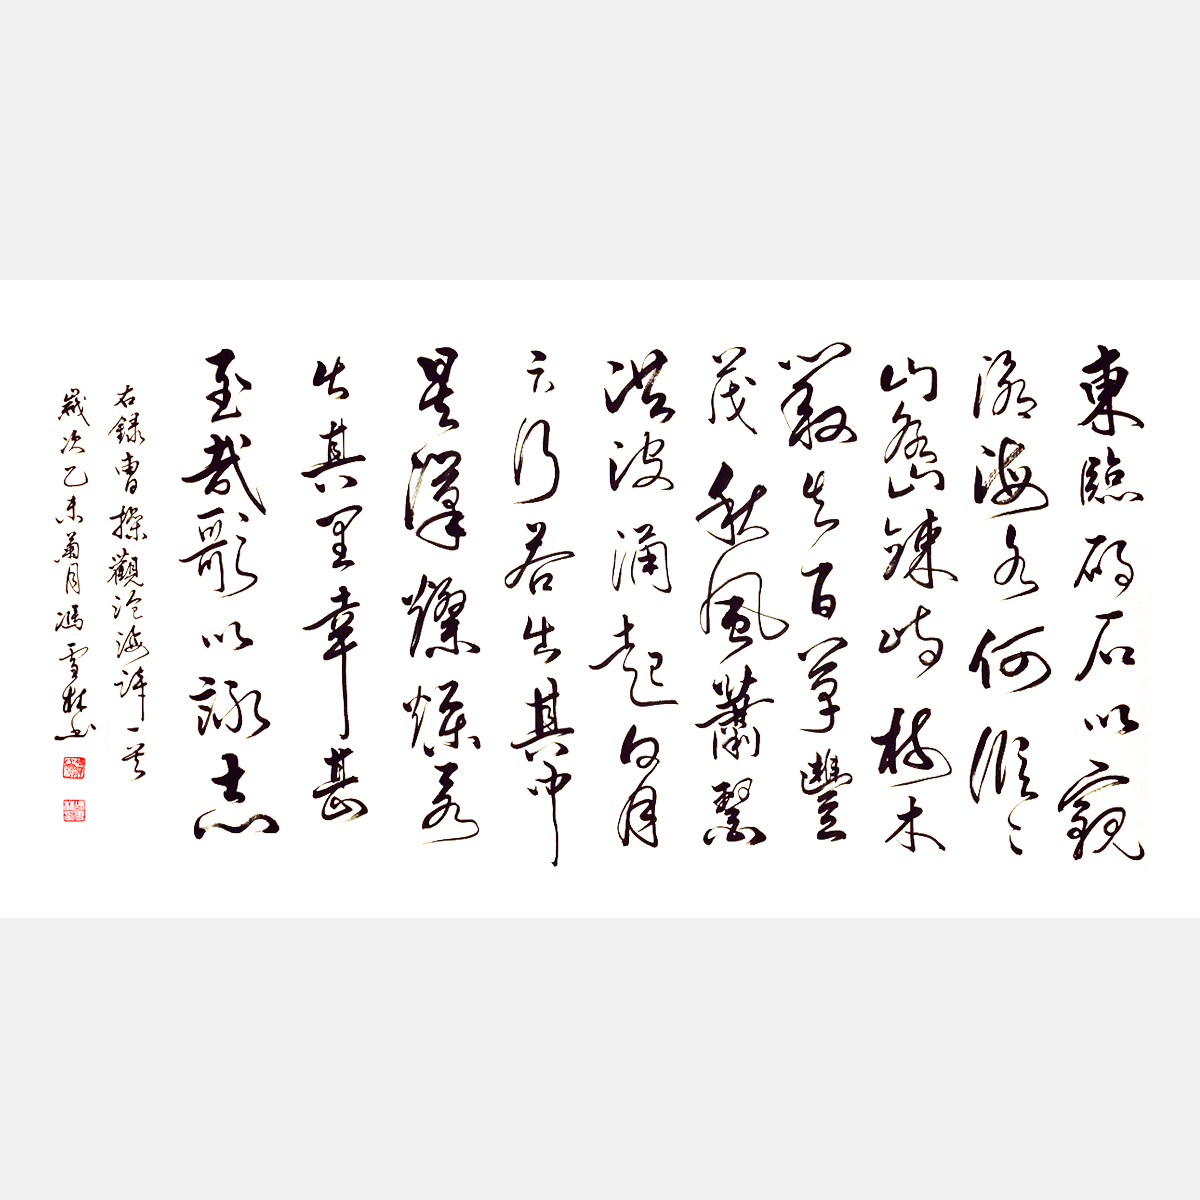 東臨碣石以觀
滄海水何澹〻
山島竦峙樹木
叢生百草豐
茂秋風蕭瑟
洪波涌起日月
之行若出其中
星漢燦爛若
出其里幸甚
至哉歌以詠志
右錄曹操觀滄海詩一首
歲次乙未菊月馮雪林書